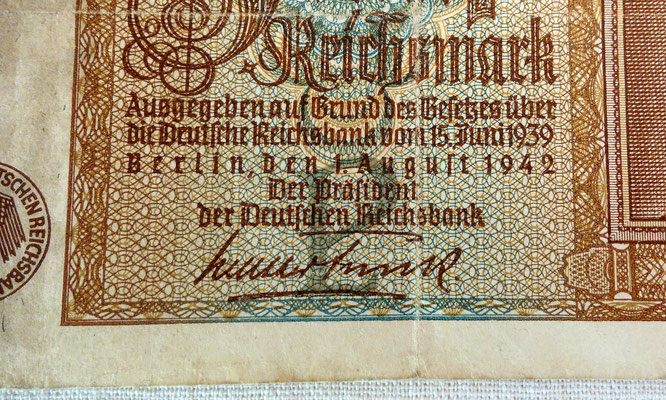 Reichsmark
Ausgegeben auf Grund des Gesetzes über
die Deutsche Reichsbank vom 15. Juni 1939
Berlin, den 1. August 1942
Der Präsident
der Deutschen Reichsbank
Walther Funk
TSCHEN REICHSBA